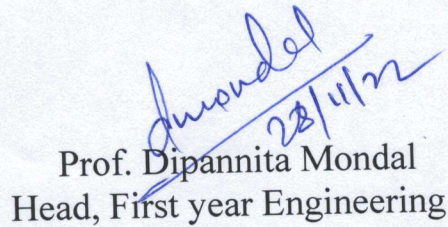 dmondal
28/11/22
Prof. Dipannita Mondal
Head, First year Engineering